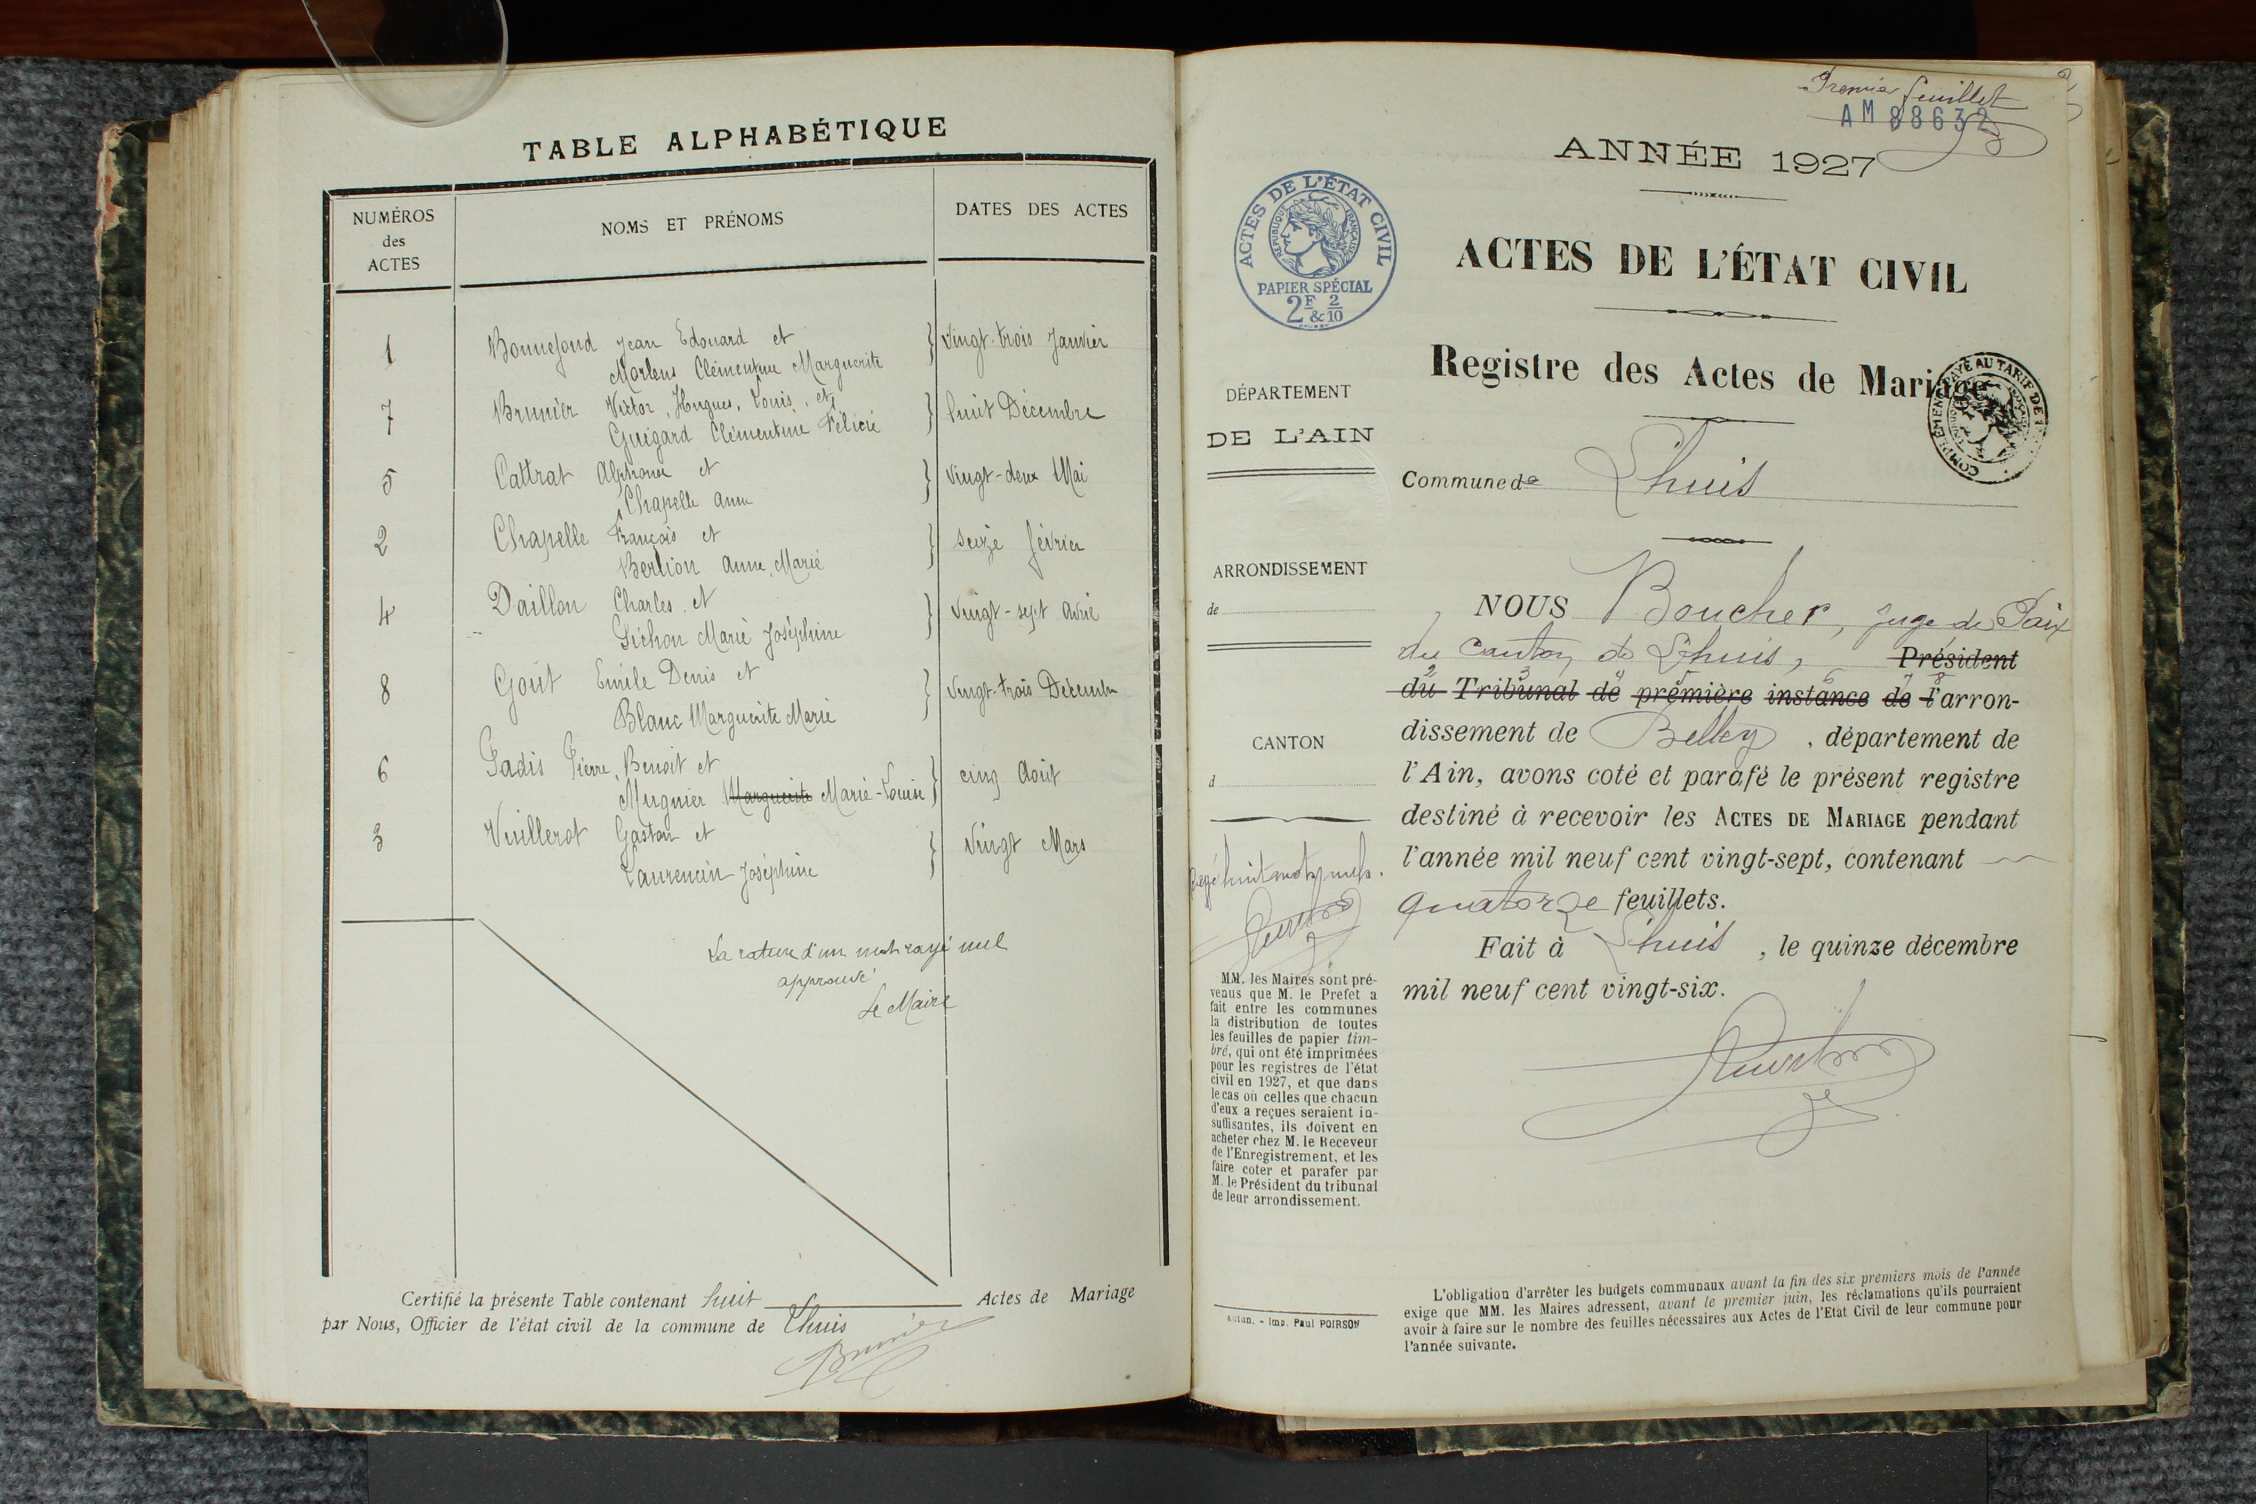 TABLE ALPHABÉTIQUE
NUMÉROS
des
ACTES
NOMS ET PRÉNOMS
DATES DES ACTES
1 Bonnefond Jean Edouard et Vingt-trois Janvier
Morlens Clémentine Marguerite
7 Brunier Victor, Hugues, Louis, et huit Décembre
Guigard Clémentine Félicie
5 Cattrat Alphonse et Vingt-deux Mai
Chapelle Anne
2 Chapelle François et Seize février
Berlion Anne, Marie
4 Daillon Charles et Vingt-sept Avril
Marie Joséphine
8 Gout Emile Denis et Vingt-trois Décembre
Blanc Marguerite Marie
6 Pierre, Benoit et cinq Août
Mugnier Marguerite Marie-Louise
3 Vuillerot Gaston et Vingt Mars
Laurencin Joséphine
La rature d'un mot rayé nul
approuvé
Le Maire
Certifié la présente Table contenant huit Actes de Mariage
par Nous, Officier de l'état civil de la commune de Lhuis
Brunier
Premier feuillet
AM 88632
ANNÉE 1927
ACTES DE L'ÉTAT CIVIL
RÉPUBLIQUE FRANÇAISE
PAPIER SPÉCIAL
2F & 2/10
ACTES DE L'ÉTAT CIVIL
Registre des Actes de Mariage
COMPLÉMENT PAYÉ AU TARIF DE
DÉPARTEMENT
DE L'AIN
Commune de Lhuis
ARRONDISSEMENT
de
CANTON
d
Rayé huit mots nuls.
MM. les Maires sont pré-
venus que M. le Prefet a
fait entre les communes
la distribution de toutes
les feuilles de papier tim-
bré, qui ont été imprimées
pour les registres de l'état
civil en 1927, et que dans
le cas où celles que chacun
d'eux a reçues seraient in-
suffisantes, ils doivent en
acheter chez M. le Receveur
de l'Enregistrement, et les
faire coter et parafer par
M. le Président du tribunal
de leur arrondissement.
Autun. - Imp. Paul POIRSON
NOUS Boucher, Juge de Paix
du Canton de Lhuis, Président
du Tribunal de première instance de l'arron-
2 3 4 5 6 7 8
dissement de Belley, département de
l'Ain, avons coté et parafé le présent registre
destiné à recevoir les ACTES DE MARIAGE pendant
l'année mil neuf cent vingt-sept, contenant
quatorze feuillets.
Fait à Lhuis, le quinze décembre
mil neuf cent vingt-six.
L'obligation d'arrêter les budgets communaux avant la fin des six premiers mois de l'année
exige que MM. les Maires adressent, avant le premier juin, les réclamations qu'ils pourraient
avoir à faire sur le nombre des feuilles nécessaires aux Actes de l'Etat Civil de leur commune pour
l'année suivante.